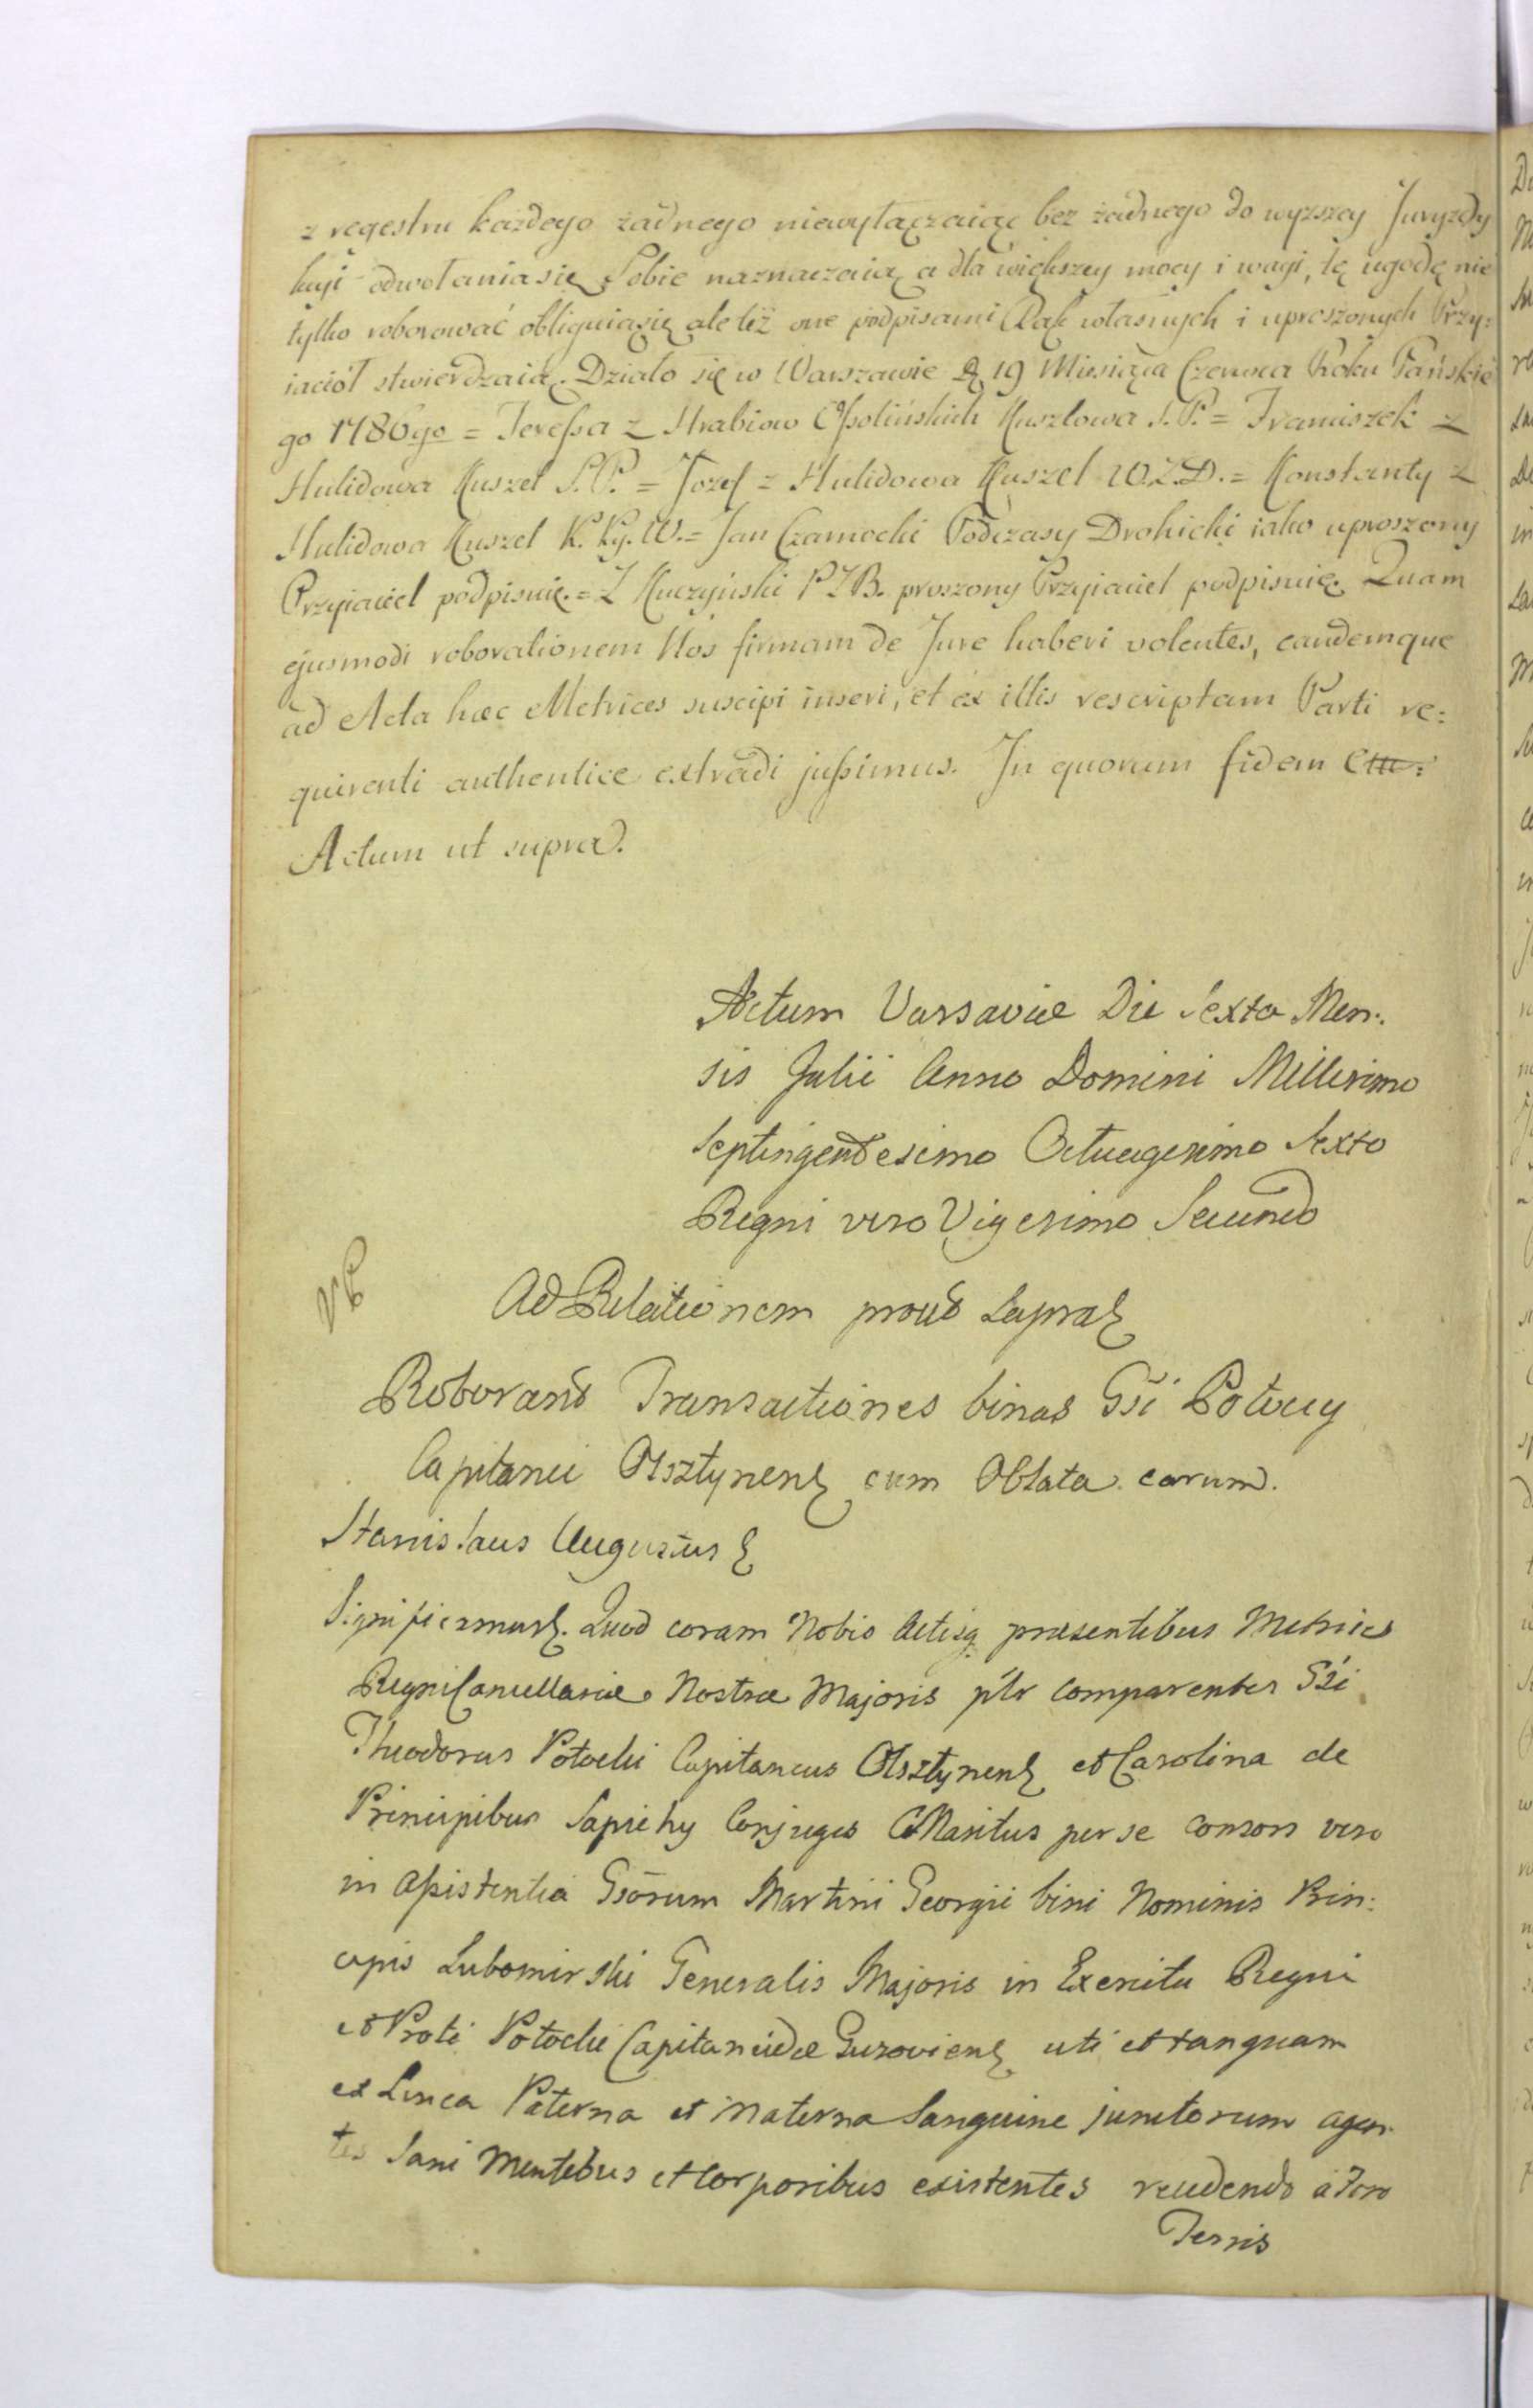 z regestru każdego żadnego niewyłączaiąc bez żadnego do wyzszey Juryzdy
kcyi odwołania się Sobie naznaczaią a dla większey mocy i wagi, tę ugodę nie
tylko roborować obliguią się ale też one podpisami Rąk własnych i uproszonych Przy:
iaciół stwierdzaią. Działo się w Warszawie D. 19 Miesiąca Czerwca Roku Pańskie
go 1786go = Teressa z Hrabiow Ossolińskich Kuszlowa S.P. = Franciszek z
Hulidowa Kuszel S.P. = Jozef z Hulidowa Kuszel W.Z.D. = Konstanty z
Hulidowa Kuszel K. Ky. W. = Jan Czarnocki Podczasy Drohicki iako uproszony
Przyiaciel podpisuię. = L Kuczyński P Z B. proszony Przyiaciel podpisuię. Quam
ejusmodi roborationem Nos firmam de Jure haberi volentes, eandemque
ad Acta hæc Metrices suscipi inseri, et ex illis rescriptam Parti re:
quirenti authentice extradi jussimus. In quorum fidem
Actum ut supra.
Actum Varsaviæ Die Sexta Men:
sis Julii Anno Domini Millesimo
Septingentesimo Octuagesimo Sexto
Regni vero Vigesimo Secundo
Ad Relationem prout supra
Roborans Transactiones binas Gsi Potocey
Capitanei Olsztynen cum Oblata earum.
Stanislaus Augustus
Significamus. Quod coram Nobis Actisq præsentibus Metrices
Regni Cancellariæ Nostræ Majoris plr comparentes Gsi
Theodorus Potocki Capitaneus Olsztynen et Carolina de
Principibus Sapiehy Conjuges Maritus per se Consors vero
in Assistentia Gsorum Martini Georgii bini Nominis Prin:
cipis Lubomirski Generalis Majoris in Exercitu Regni
et Proti Potocki Capitaneidæ Guzovien uti et tanquam
ex Linea Paterna et Materna Sanguine junctorum agen
tes Sani Mentibus et Corporibus existentes recedendo a Foro
Terris